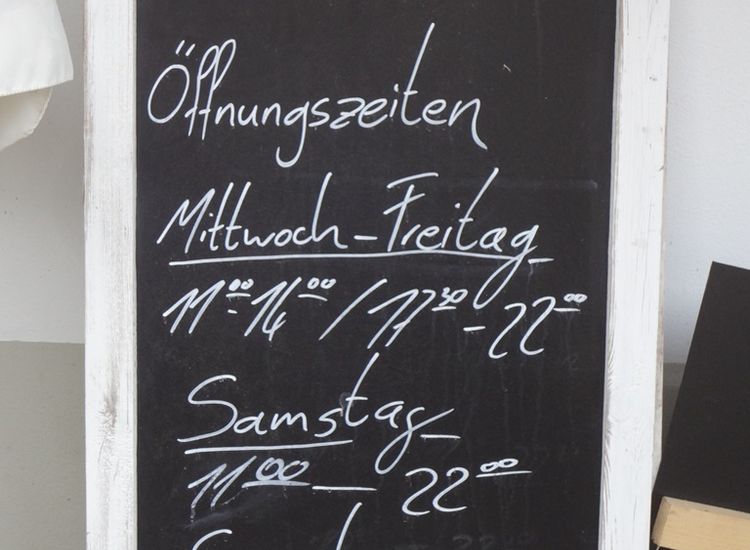 Öffnungszeiten
Mittwoch - Freitag
11⁰⁰ - 14⁰⁰ / 17³⁰ - 22⁰⁰
Samstag
11⁰⁰ — 22⁰⁰